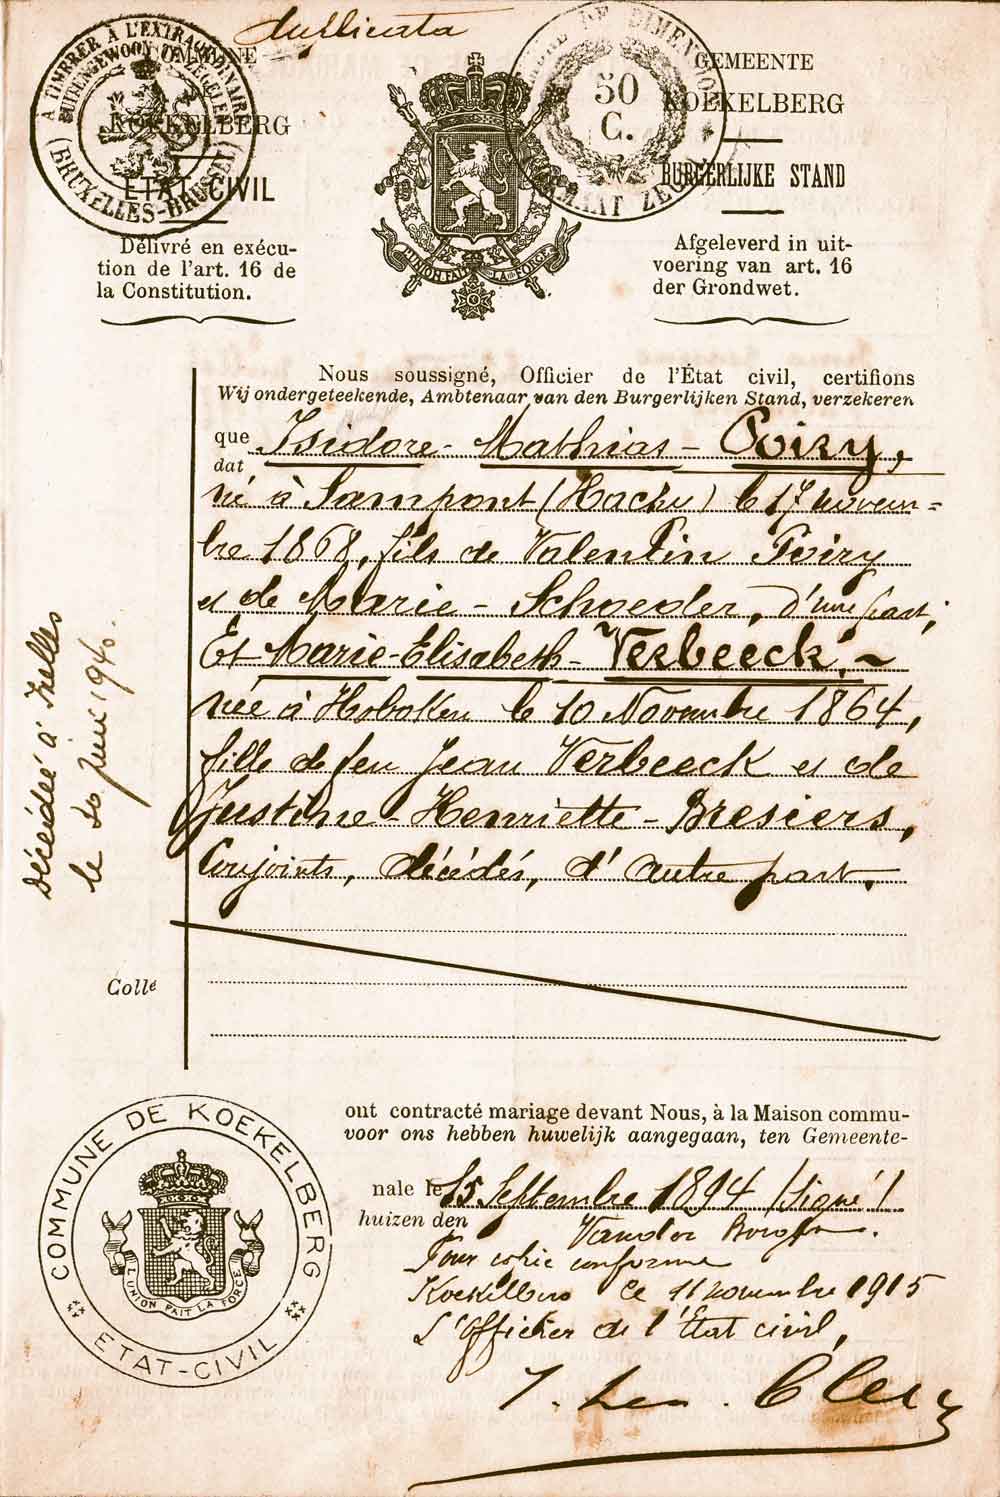 Duplicata
À TIMBRER À L'EXTRAORDINAIRE
BUITENGEWOON TE ZEGELEN
(BRUXELLES-BRUSSEL)
COMMUNE
KOEKELBERG
ÉTAT CIVIL
Délivré en exécu-
tion de l'art. 16 de
la Constitution.
L'UNION FAIT LA FORCE
TIMBRE DE DIMENSION
50
C.
FORMAAT ZEGEL
GEMEENTE
KOEKELBERG
BURGERLIJKE STAND
Afgeleverd in uit-
voering van art. 16
der Grondwet.
Nous soussigné, Officier de l'État civil, certifions
Wij ondergeteekende, Ambtenaar van den Burgerlijken Stand, verzekeren
que Isidore-Mathias-Poiry,
dat
né à Sampont (Hachy) le 17 novem=
bre 1868, fils de Valentin Poiry
et de Marie-Schoeder, d'une part;
Et Marie-Elisabeth-Verbeeck,~
née à Hoboken le 10 Novembre 1864,
fille de feu Jean Verbeeck et de
Justine-Henriette-Bresiers,
Conjoints, décédés, d'autre part.
Décédée à Ixelles
le 20 juin 1940.
Collé
ont contracté mariage devant Nous, à la Maison commu-
voor ons hebben huwelijk aangegaan, ten Gemeente-
nale le 15 Septembre 1894 /Signé/
huizen den Vander Borght.
Pour copie conforme
Koekelberg le 11 novembre 1915
L'Officier de l'Etat civil,
COMMUNE DE KOEKELBERG
L'UNION FAIT LA FORCE
ETAT-CIVIL